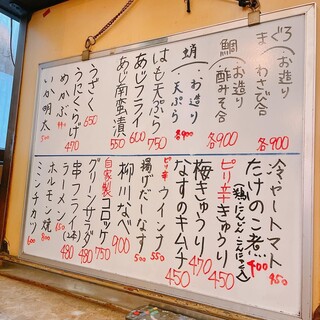 まぐろ
お造り
わさび合
各900
鯛
お造り
酢みそ合
各900
蛸
お造り
天ぷら
各900
はも天ぷら 750
あじフライ 600
あじ南蛮漬 550
うざく 650
うにくらげ 470
めかぶ 440
いか明太 500
冷やしトマト 450
たけのこ煮 400
(鶏だんご、こんにゃく入)
ピリ辛きゅうり 450
梅きゅうり 470
なすのキムチ 450
ピリ辛ウインナ 550
揚げだしなす 500
柳川なべ 900
自家製コロッケ 750
グリーンサラダ 480
串フライ(2本) 480
ラーメン 650
ホルモン焼 800
ミンチカツ 600